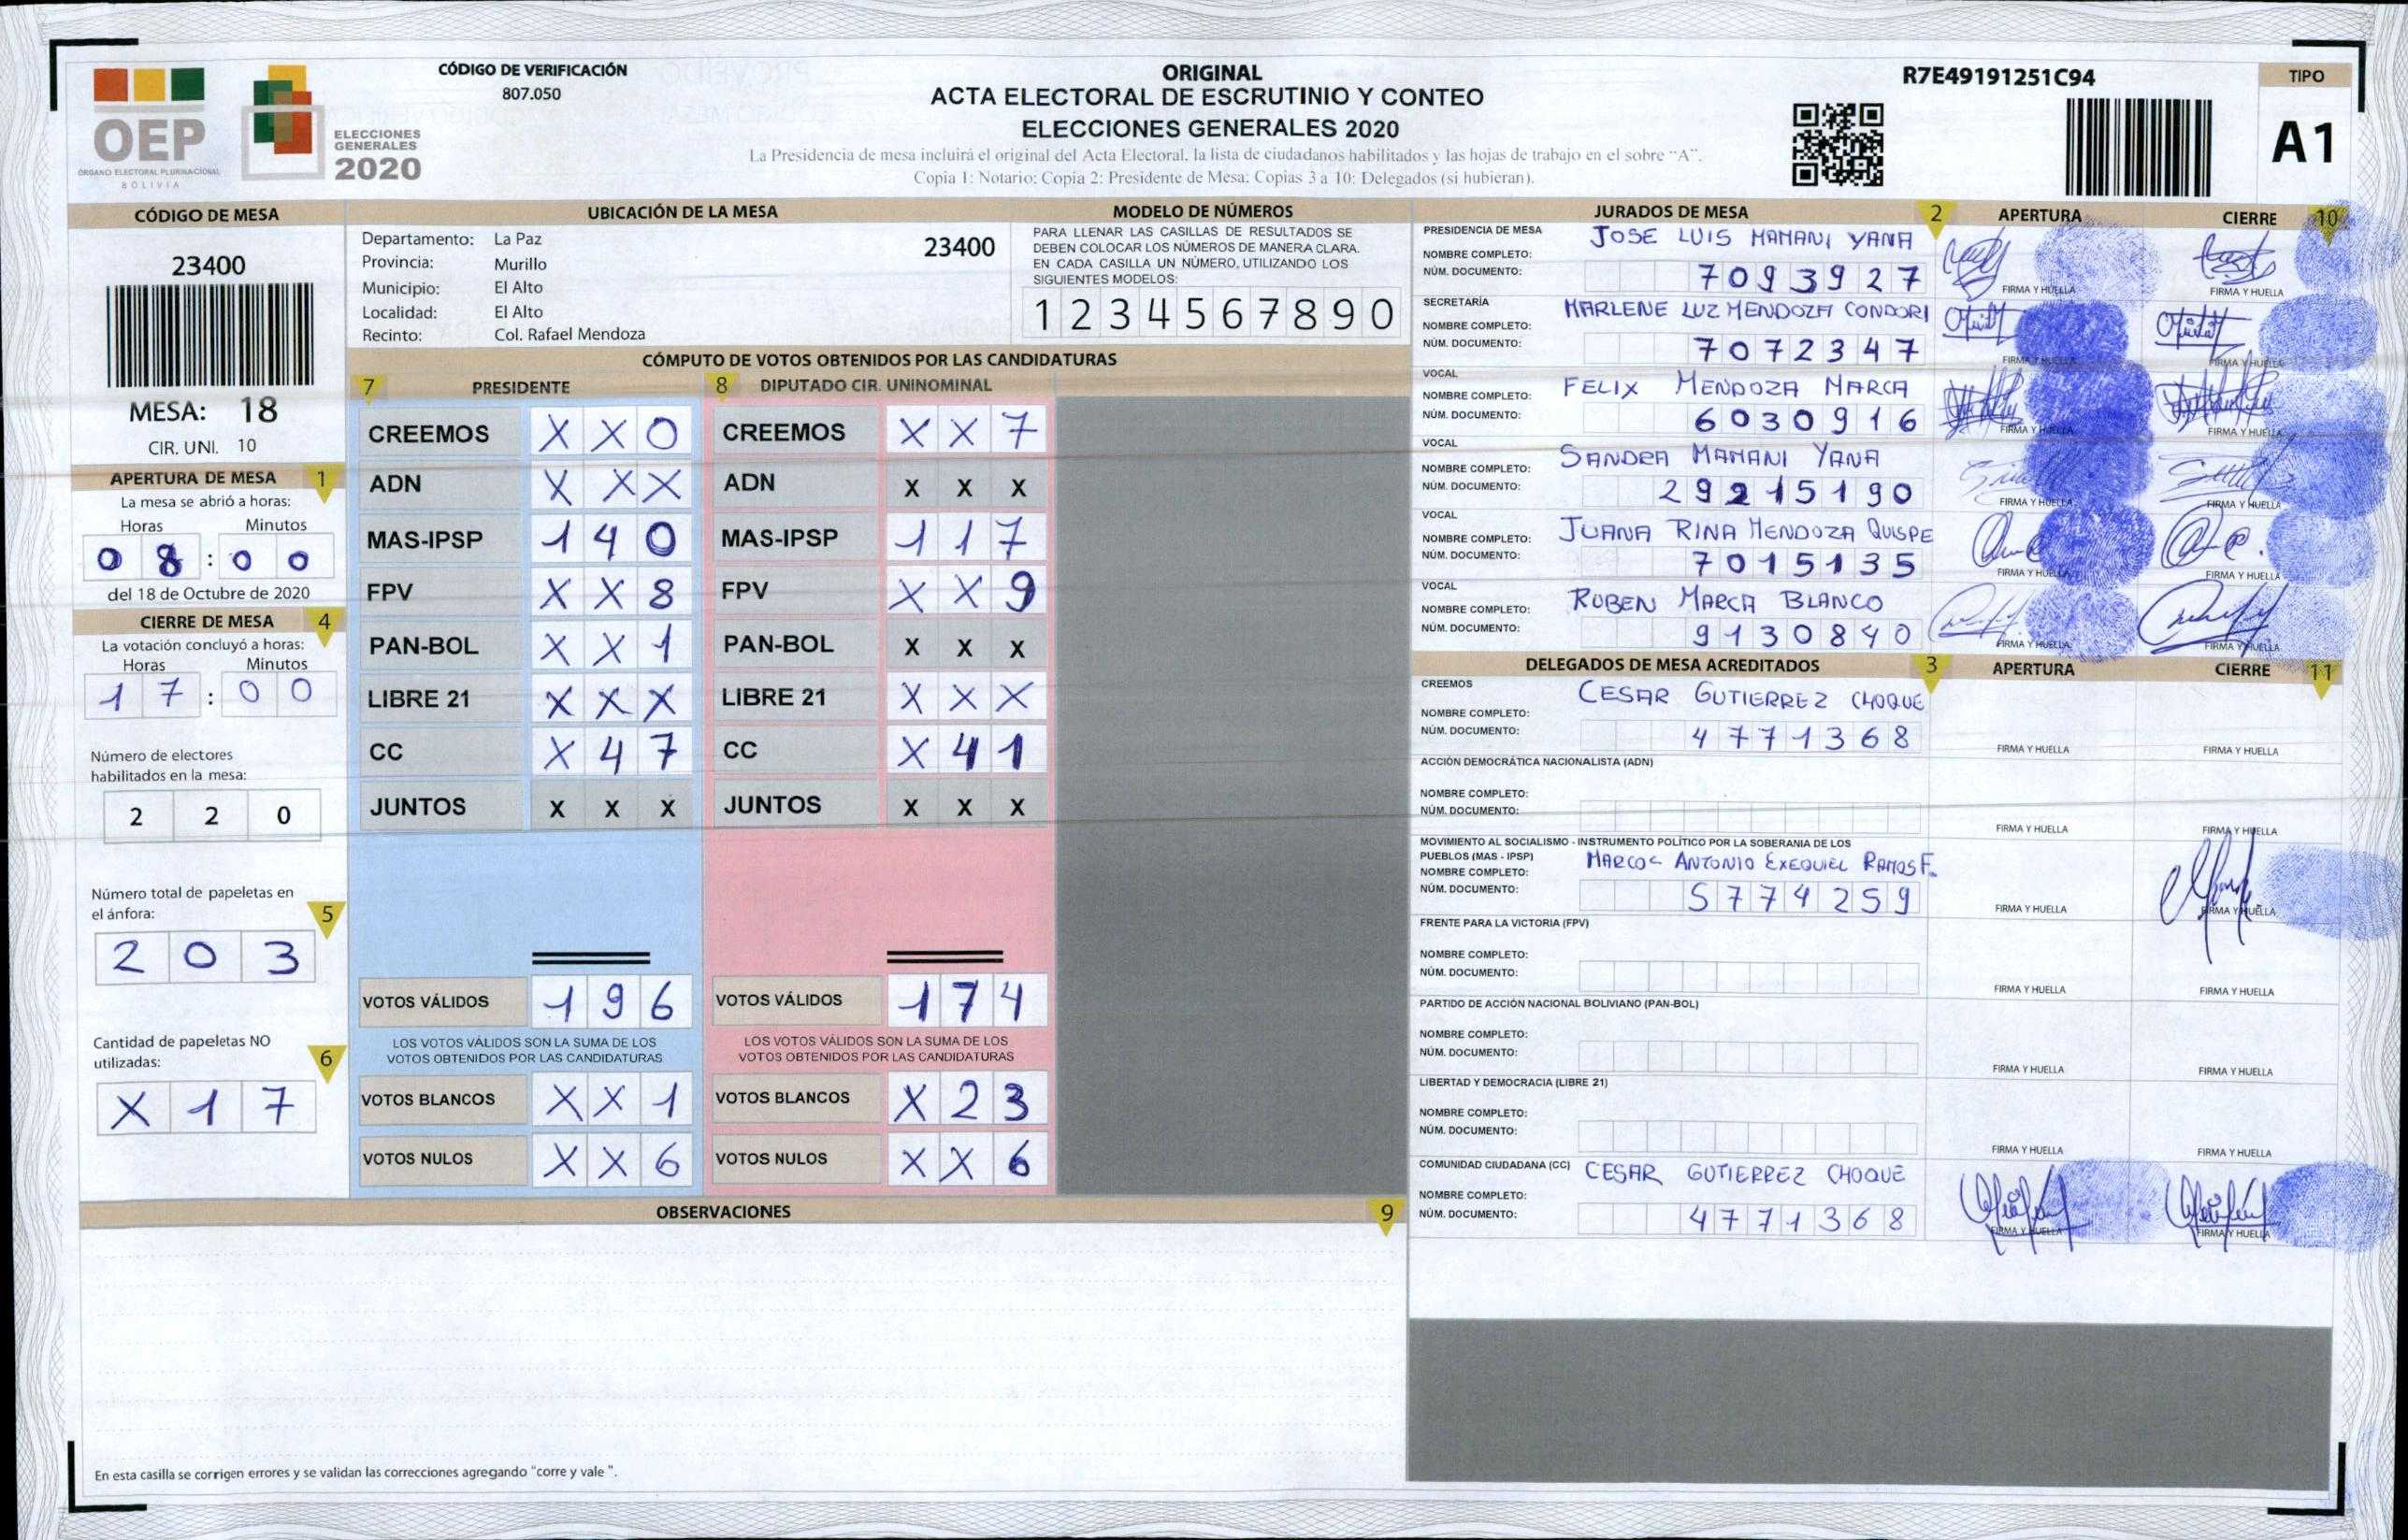 OEP
ÓRGANO ELECTORAL PLURINACIONAL
BOLIVIA
ELECCIONES
GENERALES
2020
CÓDIGO DE VERIFICACIÓN
807.050
ORIGINAL
ACTA ELECTORAL DE ESCRUTINIO Y CONTEO
ELECCIONES GENERALES 2020
La Presidencia de mesa incluirá el original del Acta Electoral, la lista de ciudadanos habilitados y las hojas de trabajo en el sobre "A".
Copia 1: Notario; Copia 2: Presidente de Mesa; Copias 3 a 10: Delegados (si hubieran).
R7E49191251C94
TIPO
A1
CÓDIGO DE MESA
23400
MESA: 18
CIR. UNI. 10
APERTURA DE MESA 1
La mesa se abrió a horas:
Horas Minutos
08 : 00
del 18 de Octubre de 2020
CIERRE DE MESA 4
La votación concluyó a horas:
Horas Minutos
17 : 00
Número de electores
habilitados en la mesa:
2 2 0
Número total de papeletas en
el ánfora: 5
2 0 3
Cantidad de papeletas NO
utilizadas: 6
X 1 7
UBICACIÓN DE LA MESA
Departamento: La Paz 23400
Provincia: Murillo
Municipio: El Alto
Localidad: El Alto
Recinto: Col. Rafael Mendoza
MODELO DE NÚMEROS
PARA LLENAR LAS CASILLAS DE RESULTADOS SE
DEBEN COLOCAR LOS NÚMEROS DE MANERA CLARA.
EN CADA CASILLA UN NÚMERO, UTILIZANDO LOS
SIGUIENTES MODELOS:
1 2 3 4 5 6 7 8 9 0
CÓMPUTO DE VOTOS OBTENIDOS POR LAS CANDIDATURAS
7 PRESIDENTE 8 DIPUTADO CIR. UNINOMINAL
CREEMOS X X 0 CREEMOS X X 7
ADN X X X ADN X X X
MAS-IPSP 1 4 0 MAS-IPSP 1 1 7
FPV X X 8 FPV X X 9
PAN-BOL X X 1 PAN-BOL X X X
LIBRE 21 X X X LIBRE 21 X X X
CC X 4 7 CC X 4 1
JUNTOS X X X JUNTOS X X X
VOTOS VÁLIDOS 1 9 6 VOTOS VÁLIDOS 1 7 4
LOS VOTOS VÁLIDOS SON LA SUMA DE LOS LOS VOTOS VÁLIDOS SON LA SUMA DE LOS
VOTOS OBTENIDOS POR LAS CANDIDATURAS VOTOS OBTENIDOS POR LAS CANDIDATURAS
VOTOS BLANCOS X X 1 VOTOS BLANCOS X 2 3
VOTOS NULOS X X 6 VOTOS NULOS X X 6
OBSERVACIONES 9
En esta casilla se corrigen errores y se validan las correcciones agregando "corre y vale ".
JURADOS DE MESA 2 APERTURA CIERRE 10
PRESIDENCIA DE MESA
NOMBRE COMPLETO: JOSE LUIS MAMANI YANA
NÚM. DOCUMENTO: 7093927
FIRMA Y HUELLA FIRMA Y HUELLA
SECRETARÍA
NOMBRE COMPLETO: MARLENE LUZ MENDOZA CONDORI
NÚM. DOCUMENTO: 7072347
FIRMA Y HUELLA FIRMA Y HUELLA
VOCAL
NOMBRE COMPLETO: FELIX MENDOZA MARCA
NÚM. DOCUMENTO: 6030916
FIRMA Y HUELLA FIRMA Y HUELLA
VOCAL
NOMBRE COMPLETO: SANDRA MAMANI YANA
NÚM. DOCUMENTO: 29215190
FIRMA Y HUELLA FIRMA Y HUELLA
VOCAL
NOMBRE COMPLETO: JUANA RINA MENDOZA QUISPE
NÚM. DOCUMENTO: 7015135
FIRMA Y HUELLA FIRMA Y HUELLA
VOCAL
NOMBRE COMPLETO: RUBEN MARCA BLANCO
NÚM. DOCUMENTO: 9130840
FIRMA Y HUELLA FIRMA Y HUELLA
DELEGADOS DE MESA ACREDITADOS 3 APERTURA CIERRE 11
CREEMOS
NOMBRE COMPLETO: CESAR GUTIERREZ CHOQUE
NÚM. DOCUMENTO: 4771368
FIRMA Y HUELLA FIRMA Y HUELLA
ACCIÓN DEMOCRÁTICA NACIONALISTA (ADN)
NOMBRE COMPLETO:
NÚM. DOCUMENTO:
FIRMA Y HUELLA FIRMA Y HUELLA
MOVIMIENTO AL SOCIALISMO - INSTRUMENTO POLÍTICO POR LA SOBERANIA DE LOS
PUEBLOS (MAS - IPSP)
NOMBRE COMPLETO: MARCOS ANTONIO EXEQUIEL RAMOS F.
NÚM. DOCUMENTO: 5774259
FIRMA Y HUELLA FIRMA Y HUELLA
FRENTE PARA LA VICTORIA (FPV)
NOMBRE COMPLETO:
NÚM. DOCUMENTO:
FIRMA Y HUELLA FIRMA Y HUELLA
PARTIDO DE ACCIÓN NACIONAL BOLIVIANO (PAN-BOL)
NOMBRE COMPLETO:
NÚM. DOCUMENTO:
FIRMA Y HUELLA FIRMA Y HUELLA
LIBERTAD Y DEMOCRACIA (LIBRE 21)
NOMBRE COMPLETO:
NÚM. DOCUMENTO:
FIRMA Y HUELLA FIRMA Y HUELLA
COMUNIDAD CIUDADANA (CC)
NOMBRE COMPLETO: CESAR GUTIERREZ CHOQUE
NÚM. DOCUMENTO: 4771368
FIRMA Y HUELLA FIRMA Y HUELLA